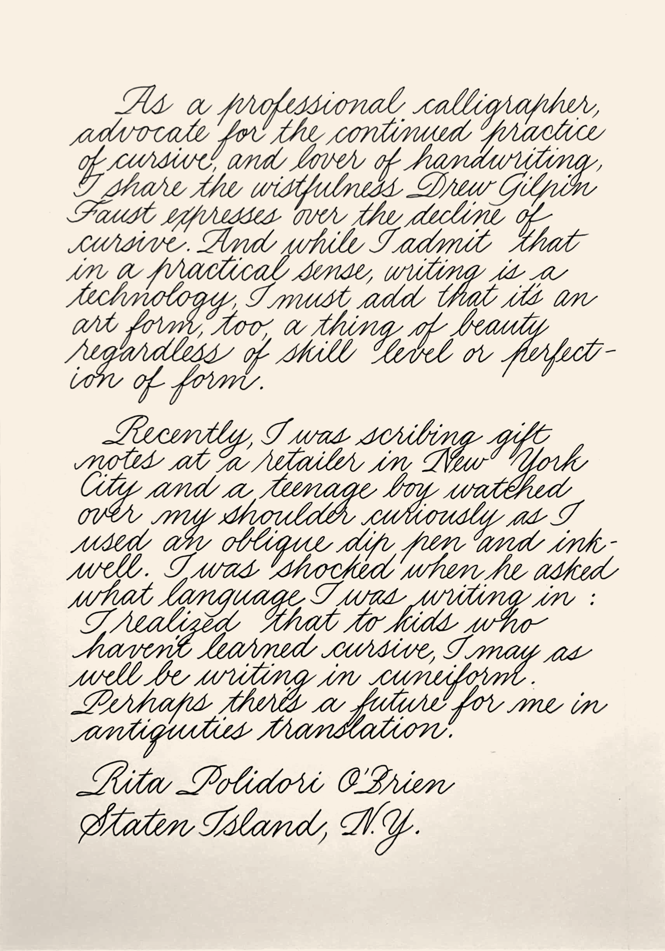 As a professional calligrapher,
advocate for the continued practice
of cursive, and lover of handwriting,
I share the wistfulness Drew Gilpin
Faust expresses over the decline of
cursive. And while I admit that
in a practical sense, writing is a
technology, I must add that it's an
art form, too, a thing of beauty
regardless of skill level or perfect-
ion of form.
Recently, I was scribing gift
notes at a retailer in New York
City and a teenage boy watched
over my shoulder curiously as I
used an oblique dip pen and ink-
well. I was shocked when he asked
what language I was writing in :
I realized that to kids who
haven't learned cursive, I may as
well be writing in cuneiform.
Perhaps there's a future for me in
antiquities translation.
Rita Polidori O'Brien
Staten Island, N.Y.